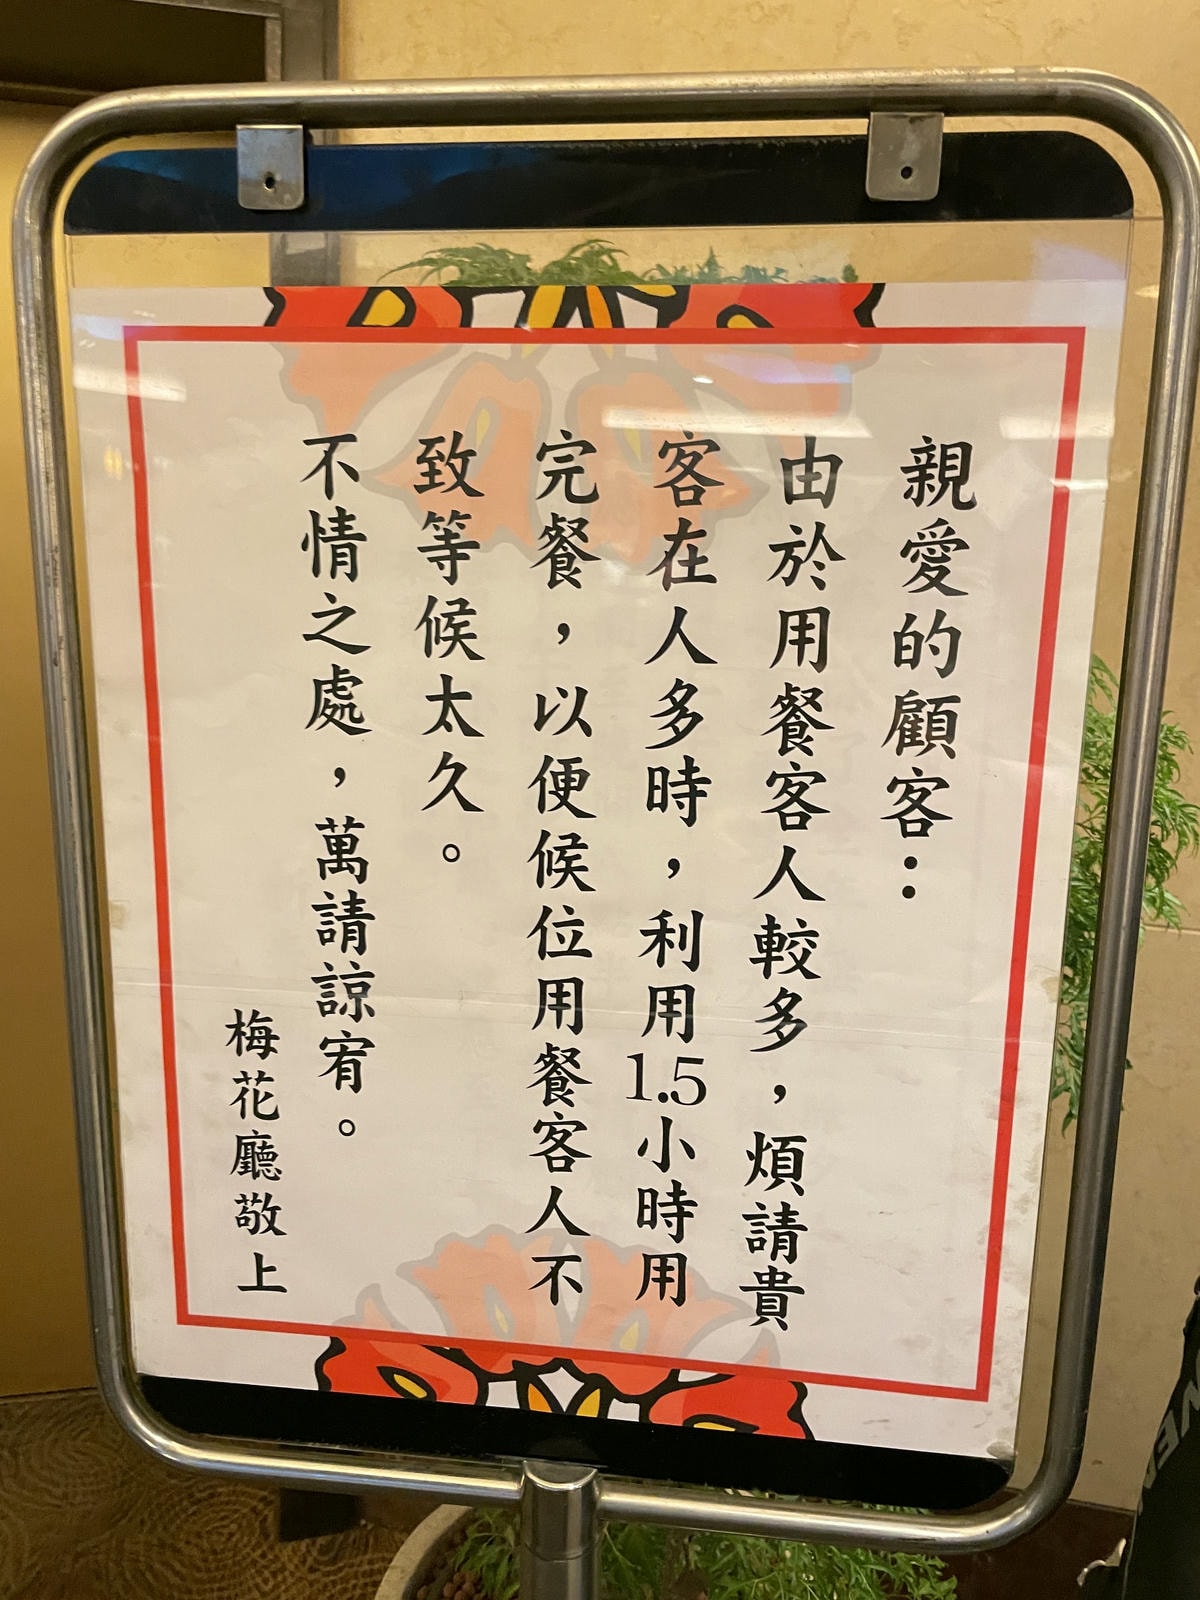 親愛的顧客：
由於用餐客人較多，煩請貴
客在人多時，利用1.5小時用
完餐，以便候位用餐客人不
致等候太久。
不情之處，萬請諒宥。
梅花廳敬上